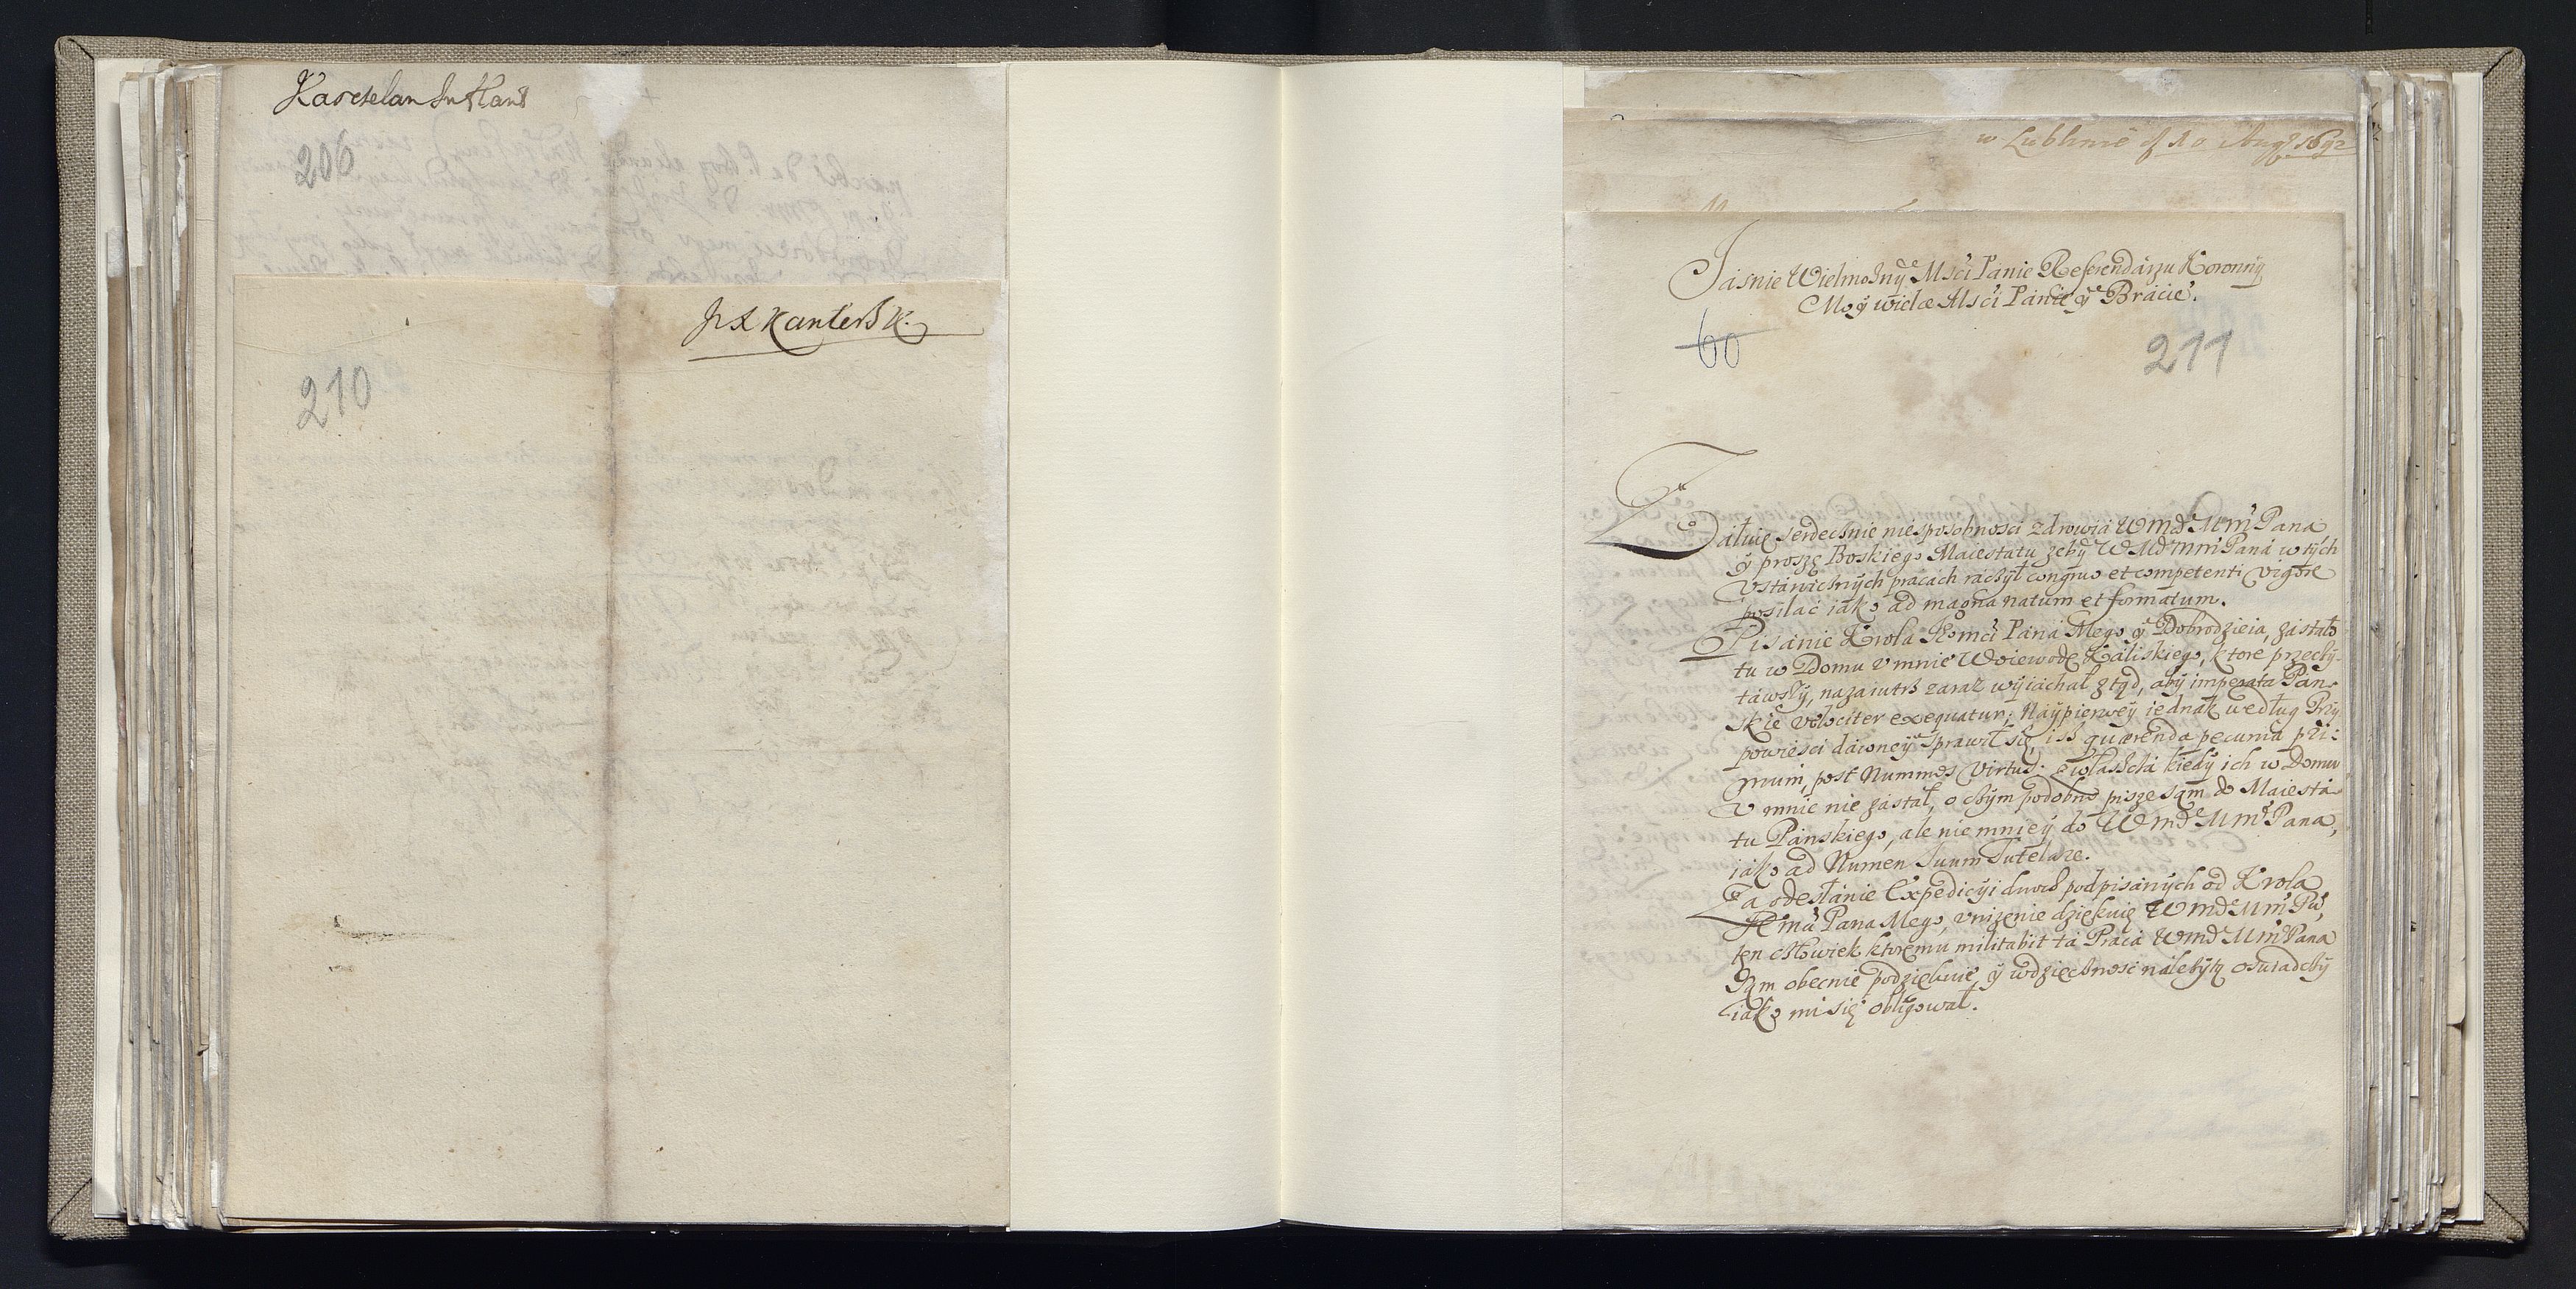 Kasztelan Inflant
206
210
w Lublinie d 10 Aug 1692
Jasnie Wielmożnÿ Mści Panie Referendarzu Koronnÿ
Moÿ wielce Mści Panie ÿ Bracie.
60
211
Żałuię serdecznie niesposobnosci zdrowia WMd MMPana
ÿ proszę Boskiego Maiestatu zebÿ WMd MMPana w tÿch
vstawicznÿch pracach raczÿł congruo et competenti vigore
posilać iako ad magna natum et formatum.
Pisanie Krola JeMci Pana Mego ÿ Dobrodzieia, zastało
tu w Domu v mnie Woiewodę Kaliskiego, ktore przeczÿ-
tawszÿ, nazaiutrz zaraz wÿiachał ztąd, abÿ imperata Pan-
skie velociter exequatur; Naÿpierweÿ iednak według Przÿ
powiesci dawneÿ sprawił się, isz quaerenda pecunia pri:
mum, post Nummos Virtus: zwłaszcza kiedÿ ich w Domu
v mnie nie zastał, o czÿm podobno pisze sąm do Maiesta-
tu Panskiego, ale nie mnieÿ do WMd MMPana,
iako ad Numen Suum Tutelare.
Za odesłanie Expedicÿi dwuch podpisanÿch od Krola
JeMci Pana Mego, vnizenie dziękuię WMd MMPu,
ten człowiek ktoremu militabit ta Praca WMd MMPana
sąm obecnie podziękuie, ÿ wdzięcznosc nalezÿtą oswiadczÿ
iako mi się obligował.